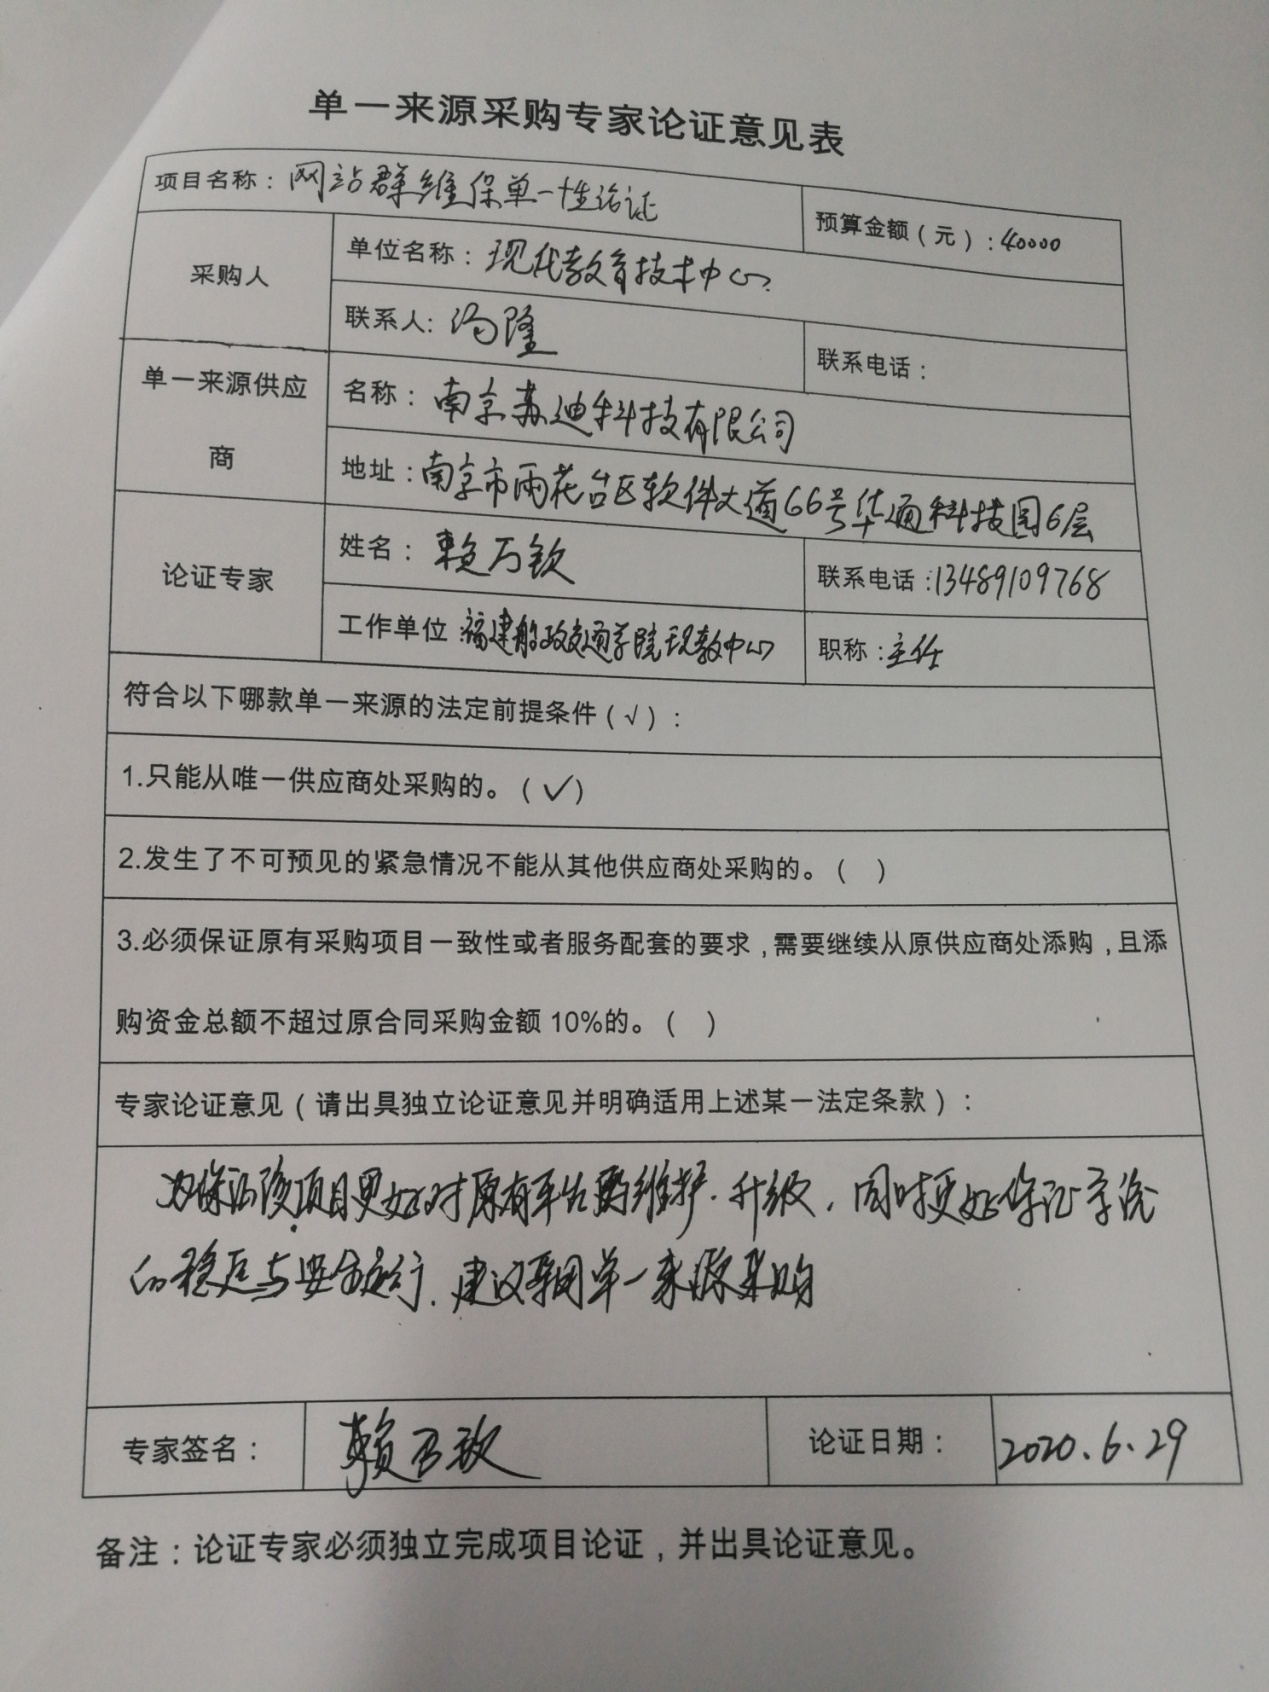 单一来源采购专家论证意见表
项目名称：网站群维保单一性论证
预算金额（元）：40000
采购人
单位名称：现代教育技术中心
联系人：汤隆
联系电话：
单一来源供应商
名称：南京苏迪科技有限公司
地址：南京市雨花台区软件大道66号华通科技园6层
论证专家
姓名：赖万钦
联系电话：13489109768
工作单位 福建船政交通学院现教中心
职称：主任
符合以下哪款单一来源的法定前提条件（√）：
1.只能从唯一供应商处采购的。（✓）
2.发生了不可预见的紧急情况不能从其他供应商处采购的。（ ）
3.必须保证原有采购项目一致性或者服务配套的要求，需要继续从原供应商处添购，且添
购资金总额不超过原合同采购金额 10%的。（ ）
专家论证意见（请出具独立论证意见并明确适用上述某一法定条款）：
为保证该项目更好对原有平台的维护、升级，同时更好保证系统
的稳定与安全运行，建议采用单一来源采购
专家签名：
赖万钦
论证日期：
2020.6.29
备注：论证专家必须独立完成项目论证，并出具论证意见。